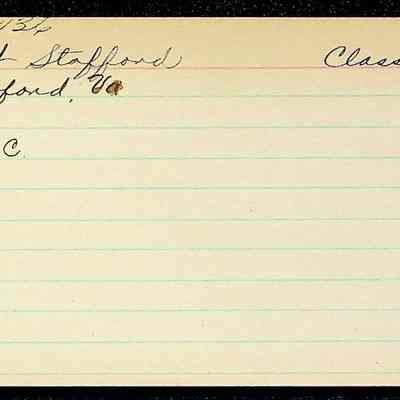 Stafford Class
ford, Va
C